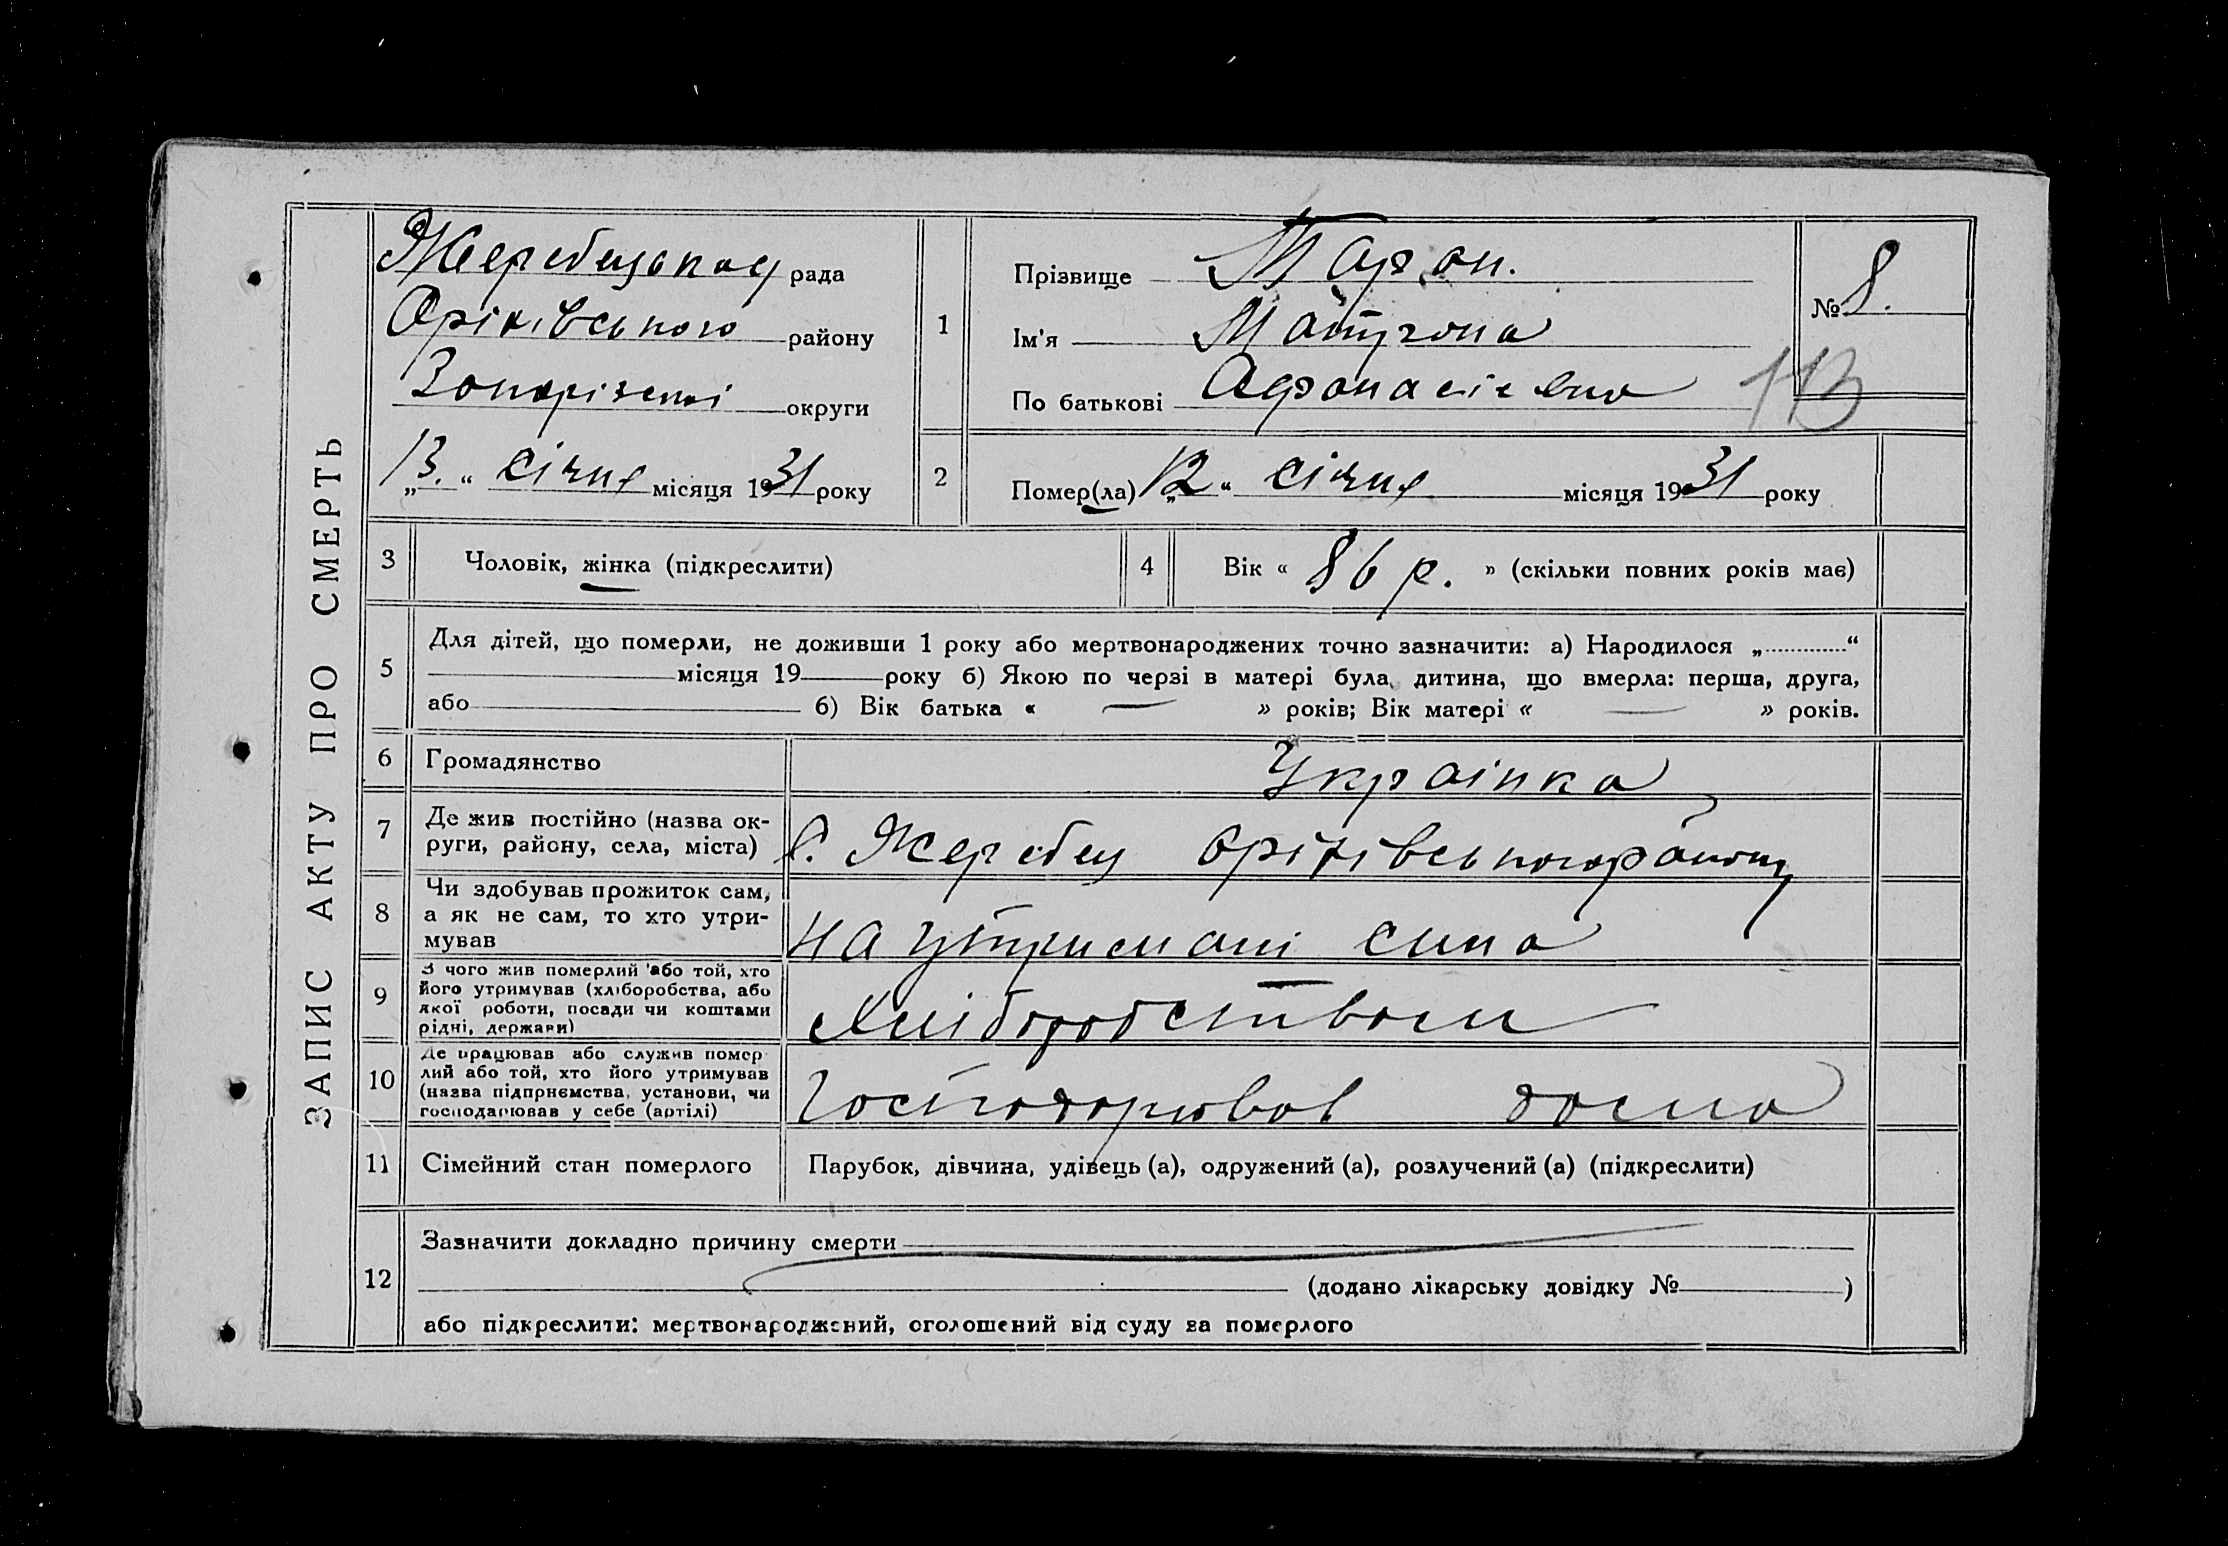 ЗАПИС АКТУ ПРО СМЕРТЬ
Жеребецькоу рада
Оріхівського району
Запоріжські округи
„13.“ січня місяця 1931 року
1
Прізвище Таран.
Ім'я Матрона
По батькові Афонасієвна
№ 8.
113
2
Помер(ла) „12“ січня місяця 1931 року
3 Чоловік, жінка (підкреслити)
4 Вік « 86 р. » (скільки повних років має)
5
Для дітей, що померли, не доживши 1 року або мертвонароджених точно зазначити: а) Народилося „.............“
місяця 19 року б) Якою по черзі в матері була дитина, що вмерла: перша, друга,
або б) Вік батька « — » років; Вік матері « — » років.
6 Громадянство Українка
7 Де жив постійно (назва ок-
руги, району, села, міста) с. Жеребец Оріхівського району
8 Чи здобував прожиток сам,
а як не сам, то хто утри-
мував на утримані сина
9 З чого жив померлий або той, хто
його утримував (хліборобства, або
якої роботи, посади чи коштами
рідні, держави) Хліборобством
10 Де працював або служив помер
лий або той, хто його утримував
(назва підприємства, установи, чи
господарював у себе (артілі) Господорював дома
11 Сімейний стан померлого Парубок, дівчина, удівець (а), одружений (а), розлучений (а) (підкреслити)
12
Зазначити докладно причину смерти
(додано лікарську довідку № )
або підкреслити: мертвонароджений, оголошений від суду за померлого